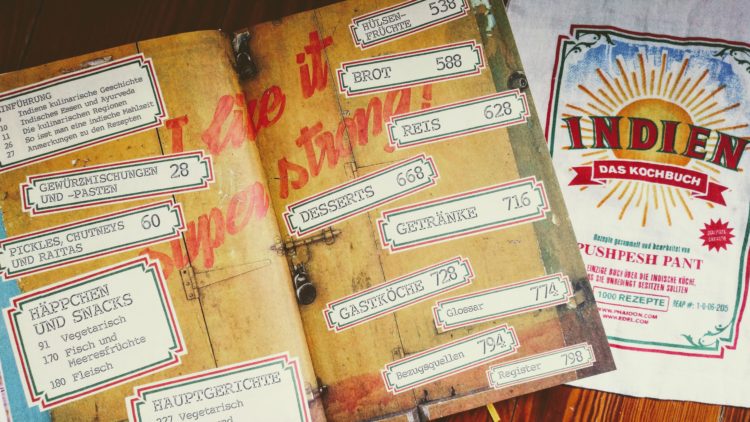 EINFÜHRUNG
10 Indiens kulinarische Geschichte
11 Indisches Essen und Ayurveda
16 Die kulinarischen Regionen
26 So isst man eine indische Mahlzeit
27 Anmerkungen zu den Rezepten
GEWÜRZMISCHUNGEN 28
UND -PASTEN
PICKLES, CHUTNEYS 60
UND RAITAS
HÄPPCHEN
UND SNACKS
91 Vegetarisch
170 Fisch und
Meeresfrüchte
180 Fleisch
HAUPTGERICHTE
227 Vegetarisch
I like it
super strong!
HÜLSEN- 538
FRÜCHTE
BROT 588
REIS 628
DESSERTS 668
GETRÄNKE 716
GASTKÖCHE 728
Glossar 774
Bezugsquellen 794
Register 798
INDIEN
DAS KOCHBUCH
Rezepte gesammelt und bearbeitet von
PUSHPESH PANT
EINZIGE BUCH ÜBER DIE INDISCHE KÜCHE,
DAS SIE UNBEDINGT BESITZEN SOLLTEN
1000 REZEPTE
WWW.PHAIDON.COM
WWW.EDEL.COM